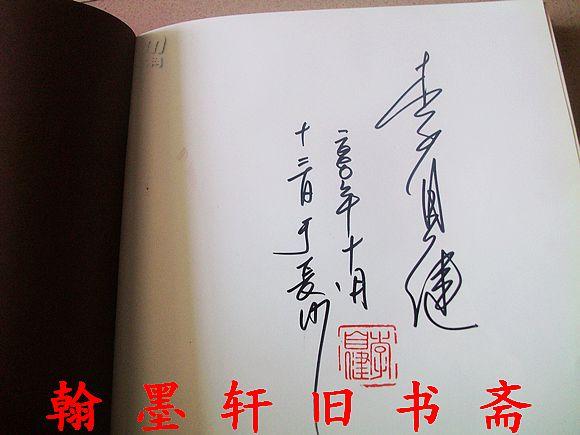 李自健
二〇〇〇年十月
十三日于長沙
李自健
翰墨轩旧书斋